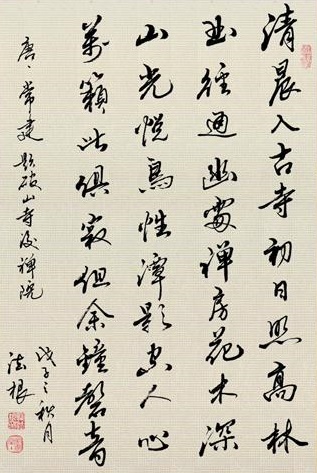 清晨入古寺初日照高林
曲徑通幽處禅房花木深
山光悦鳥性潭影空人心
萬籟此俱寂但余鐘磬音
唐、常建题破山寺後禅院
戊子之秋月
法根